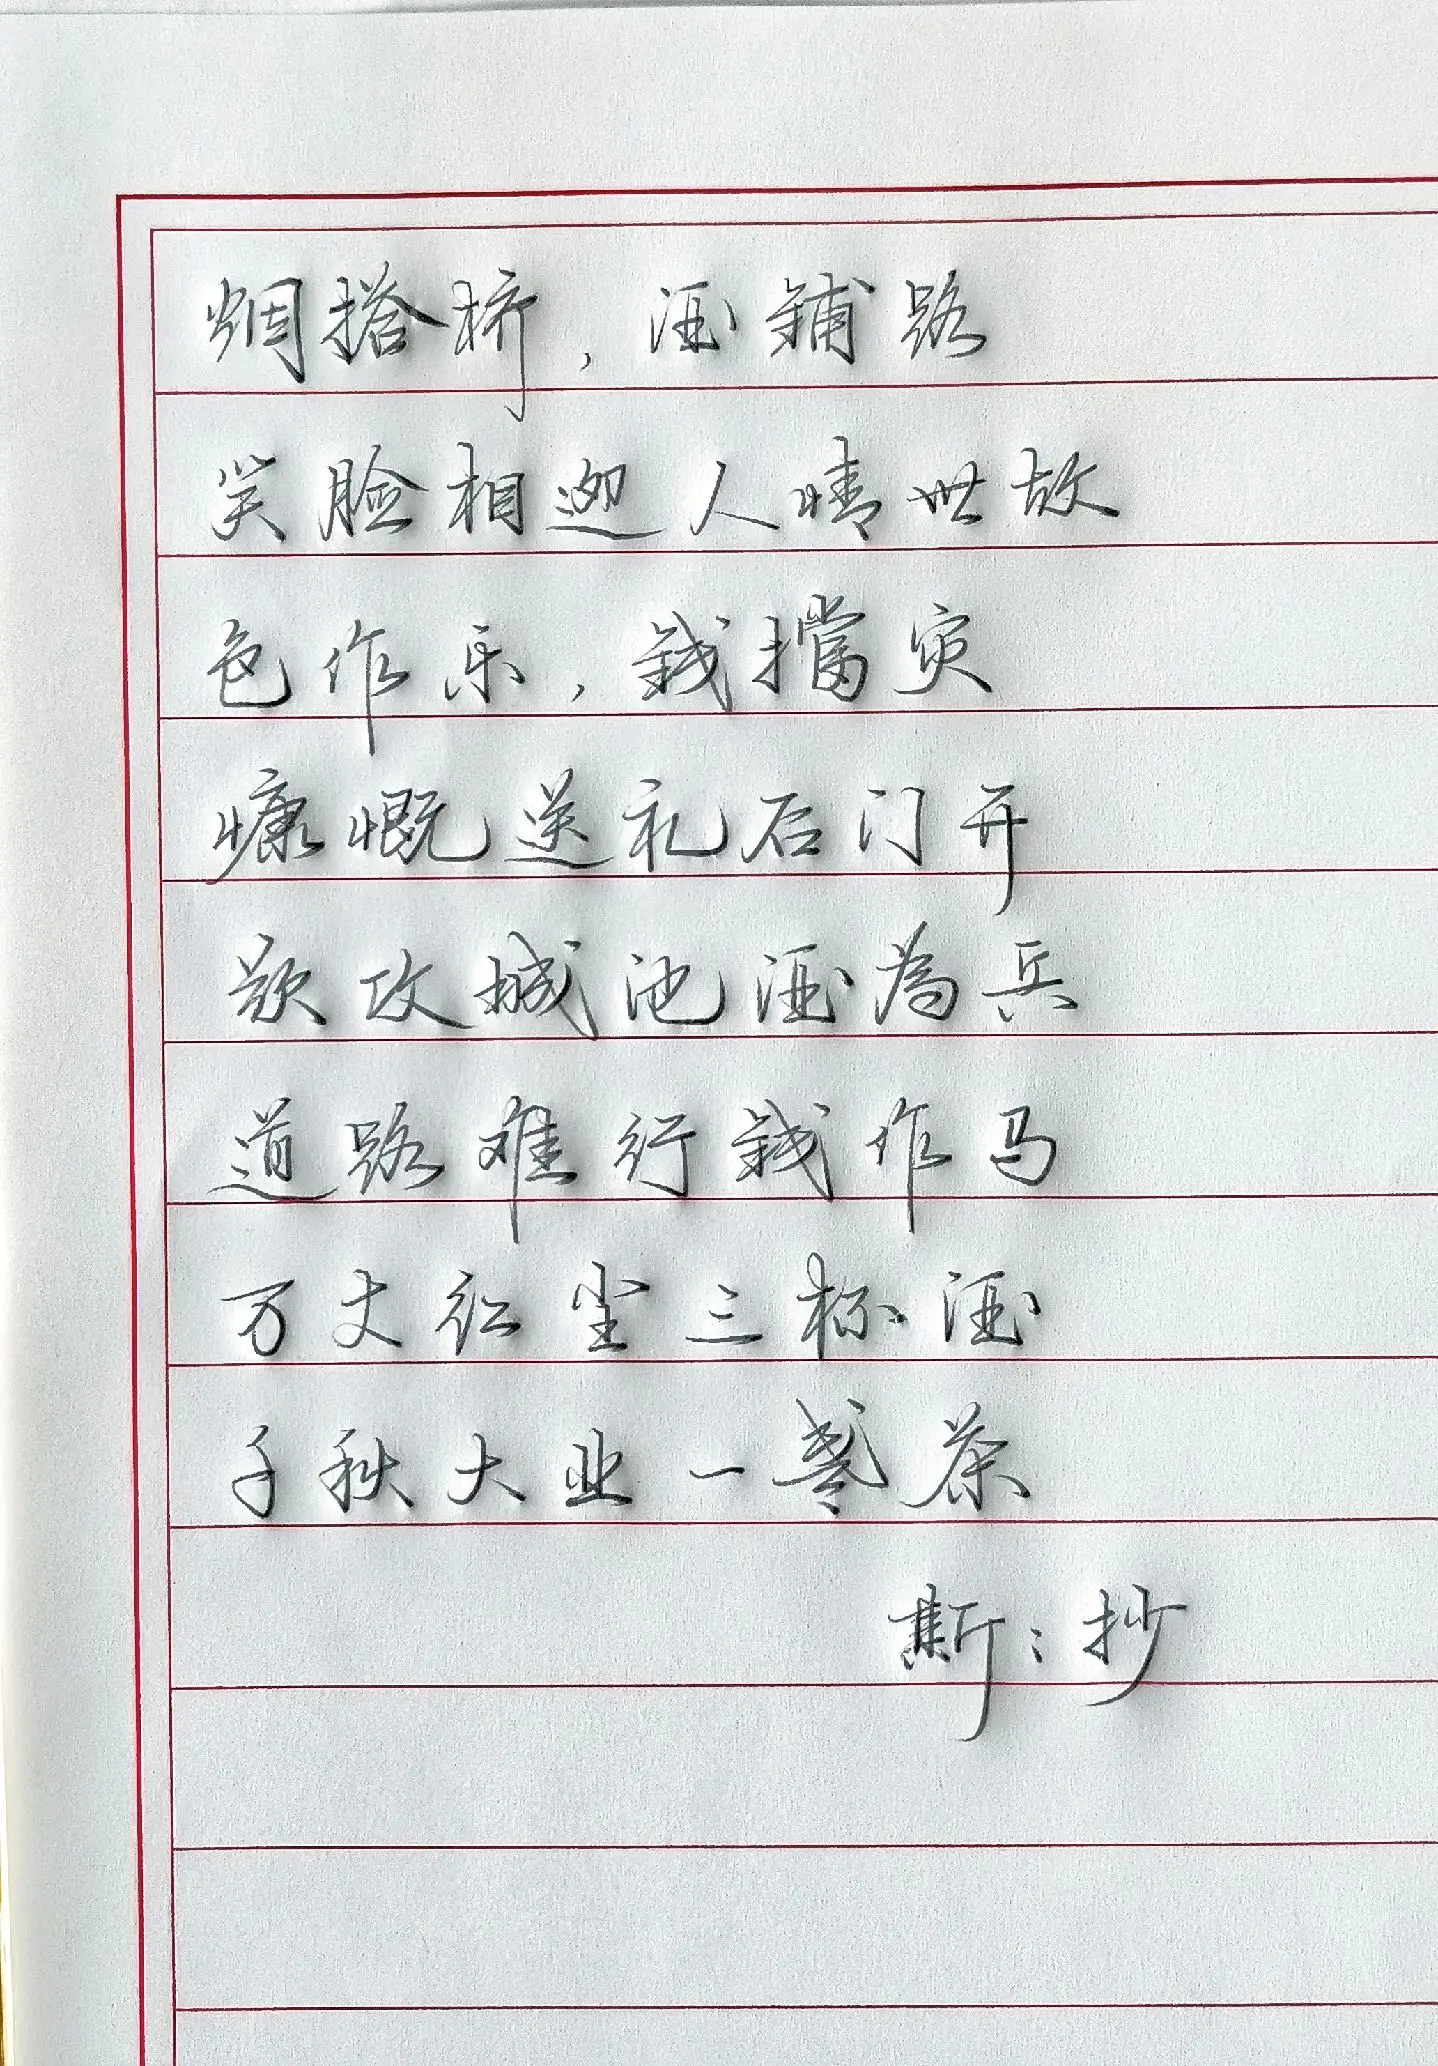 烟搭桥，酒鋪路
笑脸相迎人情世故
色作乐，錢擋灾
慷慨送礼后门开
欲攻城池酒为兵
道路难行錢作马
万丈红尘三杯酒
千秋大业一壶茶
斯：抄